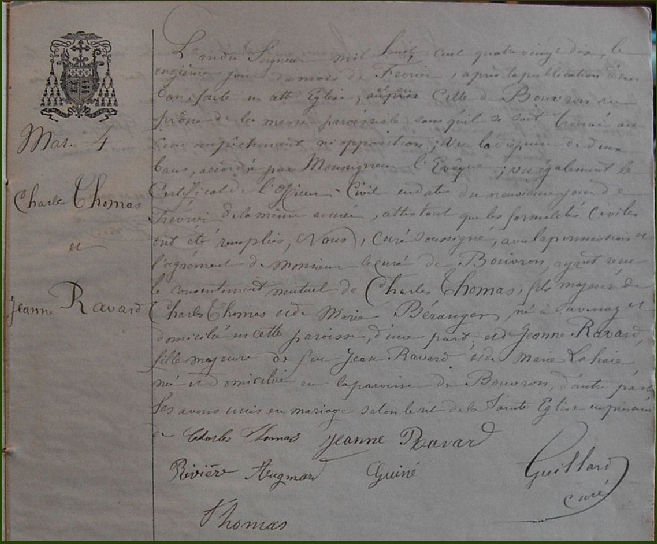 Mar. 4
Charles Thomas
et
Jeanne Ravard
L'an du Seigneur mil huit cent quatre vingt dix, le
onzième jour du mois de Février, après la publication d'un
ban, faite en cette Eglise, et dans celle de Bouvron au
prône de la messe paroissiale, sans qu'il se soit trouvé
empêchement, ni opposition; Vu la dispense de deux
bans, accordée par Monseigneur l'Evêque; vu également le
Certificat de l'Officier Civil en date du neuvième jour de
Février de la même année, attestant que les formalités Civiles
ont été remplies, Nous, Curé soussigné, avec la permission et
l'agrément de monsieur le curé de Bouvron, ayant reçu
le consentement mutuel de Charles Thomas, fils majeur de
Charles Thomas et de Marie Béranger, né à Savenay et
domicilié en cette paroisse, d'une part; et de Jeanne Ravard
fille majeure de feu Jean Ravard et de Marie Lahaie
née et domiciliée en la paroisse de Bouvron, d'autre part,
Les avons unis en mariage selon le rit de la Sainte Eglise en présence
de Charles Thomas Jeanne Ravard
Rivière Guiné Guillard
curé
Thomas